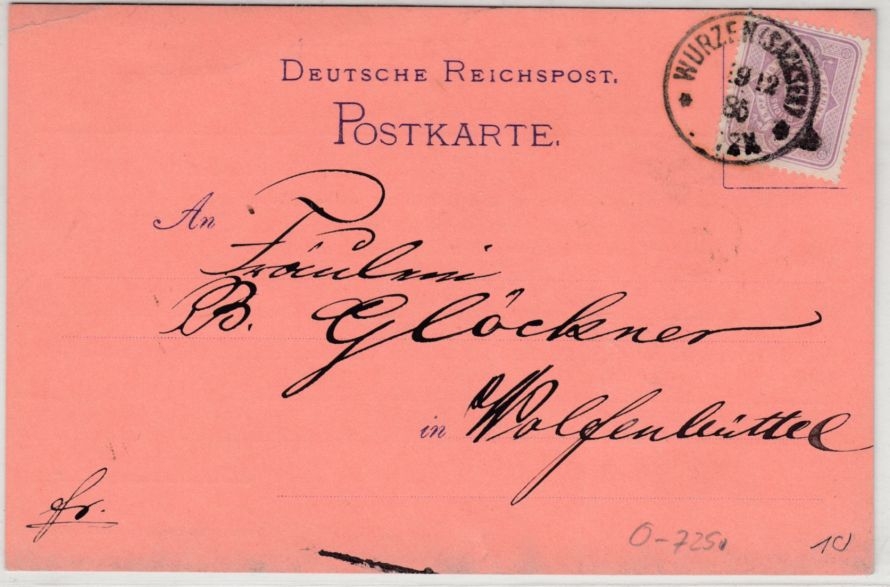 DEUTSCHE REICHSPOST.
POSTKARTE.
WURZEN (SACHSEN)
19 12
86
An
Fräulein
B. Glöckner
in Wolfenbüttel
fr.
O-7250
10